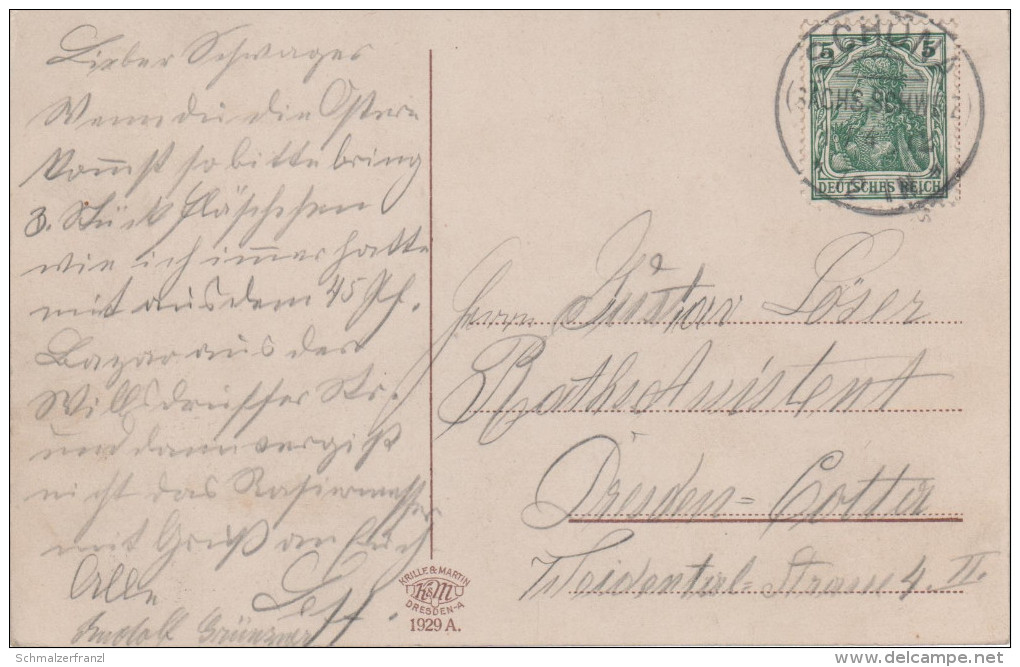 Lieber Schwager
Wenn du die Ostern
kommst so bitte bring
3. Stück Fläschchen
wie ich immer hatte
mit aus dem 45 Pf.
Bazar aus der
Willsdruffer Str.
und dann vergiß
nicht das Rasiermesser
mit Gruß an Euch
Alle
Rudolf
5 5
SÄCHS. SCHWEIZ
DEUTSCHES REICH
Herrn Gustav Löser
Raths Assistent
Dresden-Cotta
Weidental-Strasse 4. II.
KRILLE & MARTIN
K&M
DRESDEN-A
1929 A.
Schmalzerfranzl
delcampe.net